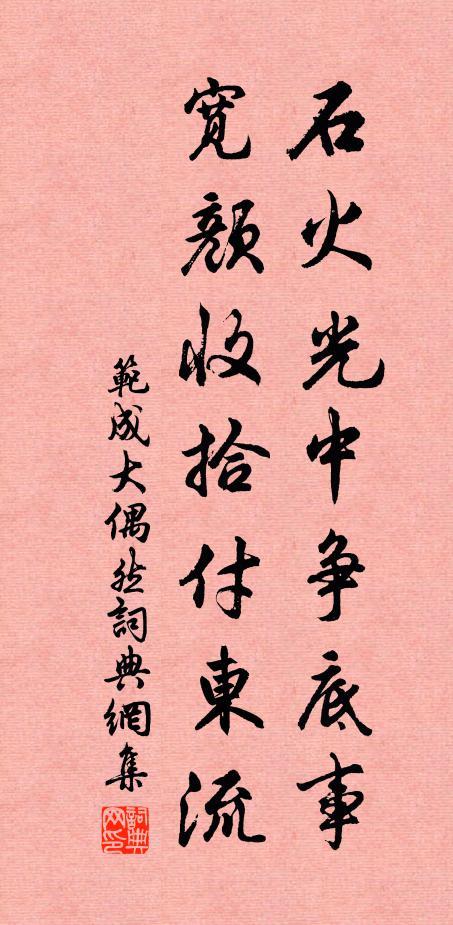 石火光中争底事
寛顔收拾付東流
範成大偶然詞典網集
詞典网印